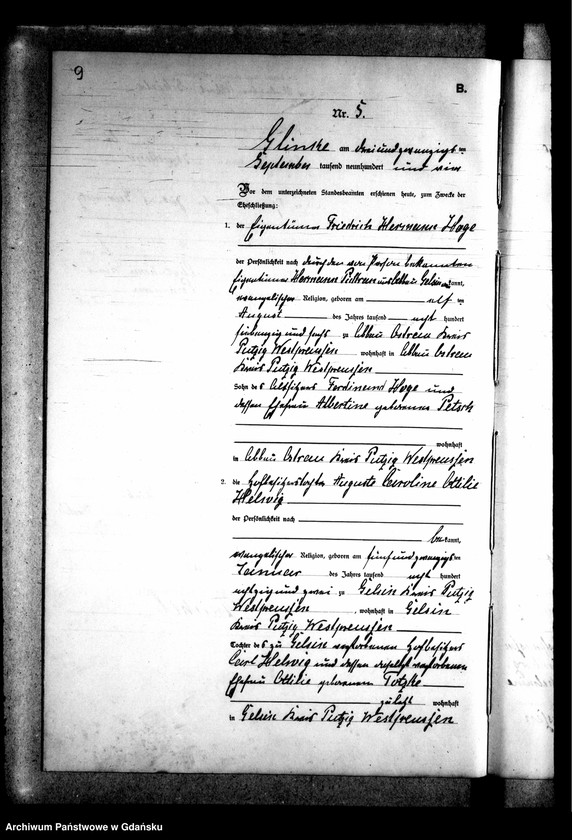 9
B.
Nr. 5.
Glinke am dreiundzwanzigsten
September tausend neunhundert und
Vor dem unterzeichneten Standesbeamten erschienen heute, zum Zwecke der
Eheschließung:
1. der Eigentümer Friedrich Hermann Hoge
der Persönlichkeit nach durch den von Person bekannten
Eigentümer Hermann aus Abbau Gelsin kannt,
evangelischer Religion, geboren am elf ten
August des Jahres tausend acht hundert
siebenzig und sechs zu Abbau Ostrau Kreis
Putzig Westpreussen wohnhaft in Abbau Ostrau
Kreis Putzig Westpreussen
Sohn des Altsitzers Ferdinand Hoge und
dessen Ehefrau Albertine geborenen Petsch
wohnhaft
in Abbau Ostrau Kreis Putzig Westpreussen
2. die Hofbesitzerstochter Auguste Caroline Ottilie
Helwig
der Persönlichkeit nach
be kannt,
evangelischer Religion, geboren am fünfundzwanzigsten
Januar des Jahres tausend acht hundert
achtzig und zwei zu Gelsin Kreis Putzig
Westpreussen, wohnhaft in Gelsin
Kreis Putzig Westpreussen
Tochter des zu Gelsin verstorbenen Hofbesitzers
Carl Helwig und dessen daselbst verstorbenen
Ehefrau Ottilie geborenen Totzke
zuletzt wohnhaft
in Gelsin Kreis Putzig Westpreussen
Archiwum Państwowe w Gdańsku